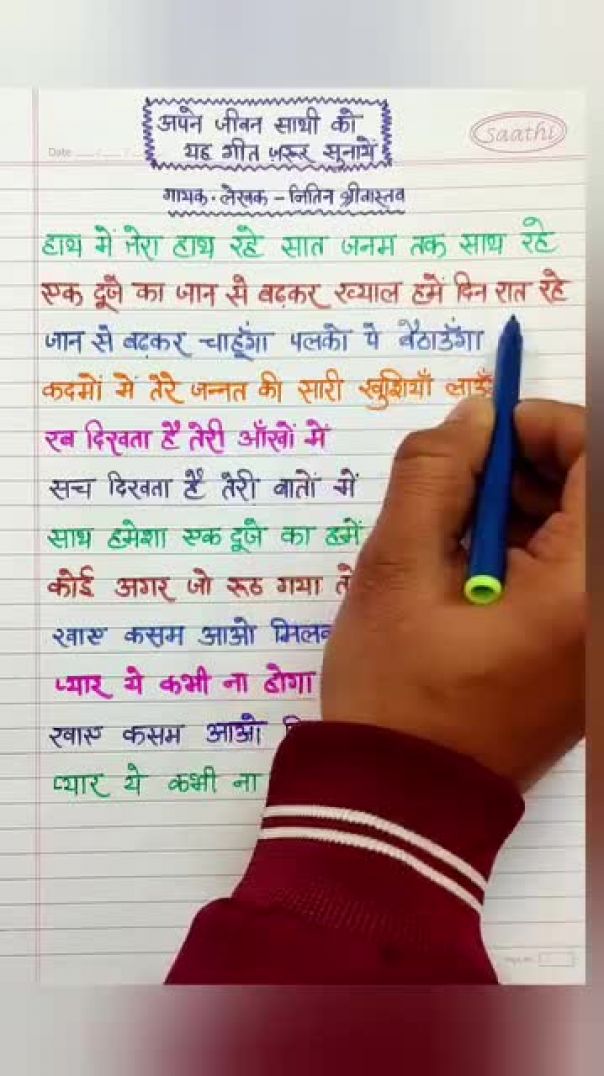 अपने जीवन साथी को
यह गीत जरूर सुनायें
Saathi
Date
गायक - लेखक - नितिन श्रीवास्तव
हाथ में तेरा हाथ रहे सात जनम तक साथ रहे
एक दूजे का जान से बढ़कर ख्याल हमें दिन रात रहे
जान से बढ़कर चाहूँगा पलकों पे बैठाऊँगा
कदमों में तेरे जन्नत की सारी खुशियाँ
रब दिखता है तेरी आँखों में
सच दिखता है तेरी बातों में
साथ हमेशा एक दूजे का हमें
कोई अगर जो रूठ गया
खाए कसम आओ
प्यार ये कभी ना होगा
खाए कसम आओ
प्यार ये कभी ना